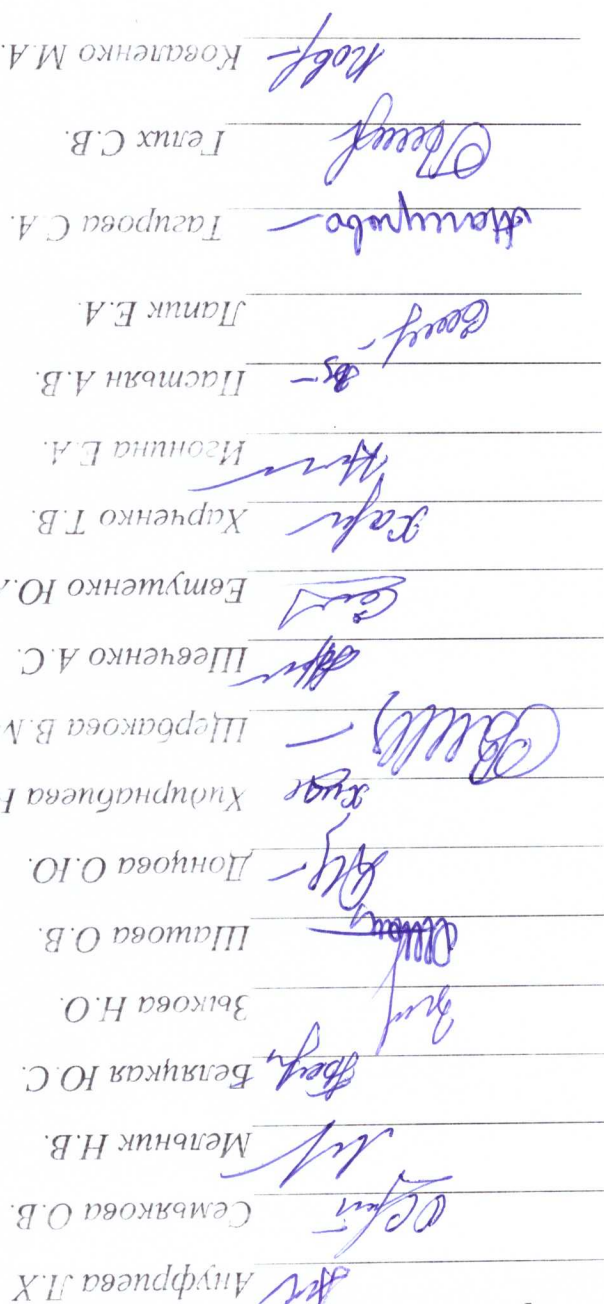 Ануфриева Л.Х
Семьякова О.В.
Мельник Н.В.
Беляцкая Ю.С.
Зыкова Н.О.
Шашова О.В.
Донцова О.Ю.
Хидирнабиева
Щербакова В.М
Шевченко А.С.
Евтушенко Ю.
Харченко Т.В.
Игонина Е.А.
Пастьян А.В.
Лапик Е.А.
Тагирова С.А.
Гелих С.В.
Коваленко М.А.